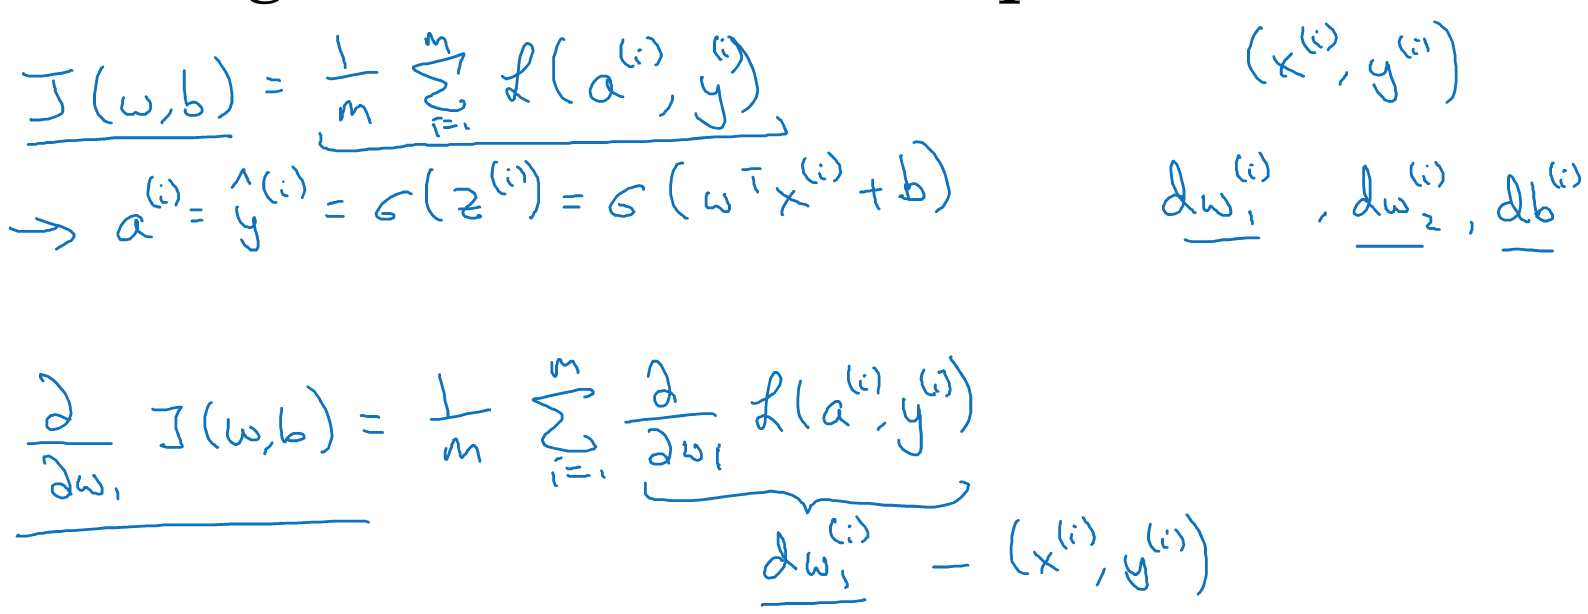 J(w,b) = 1/m Σ_{i=1}^{m} ℒ(a^{(i)}, y^{(i)})
(x^{(i)}, y^{(i)})
→ a^{(i)} = ŷ^{(i)} = σ(z^{(i)}) = σ(w^T x^{(i)} + b)
dw_1^{(i)}, dw_2^{(i)}, db^{(i)}
∂/∂w_1 J(w,b) = 1/m Σ_{i=1}^{m} ∂/∂w_1 ℒ(a^{(i)}, y^{(i)})
dw_1^{(i)} — (x^{(i)}, y^{(i)})